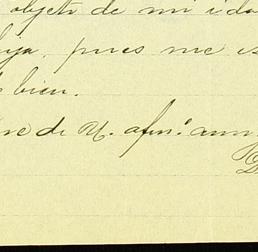 objeto de mi ido
hija, pues me es
bien.
re de V. afmo. ami